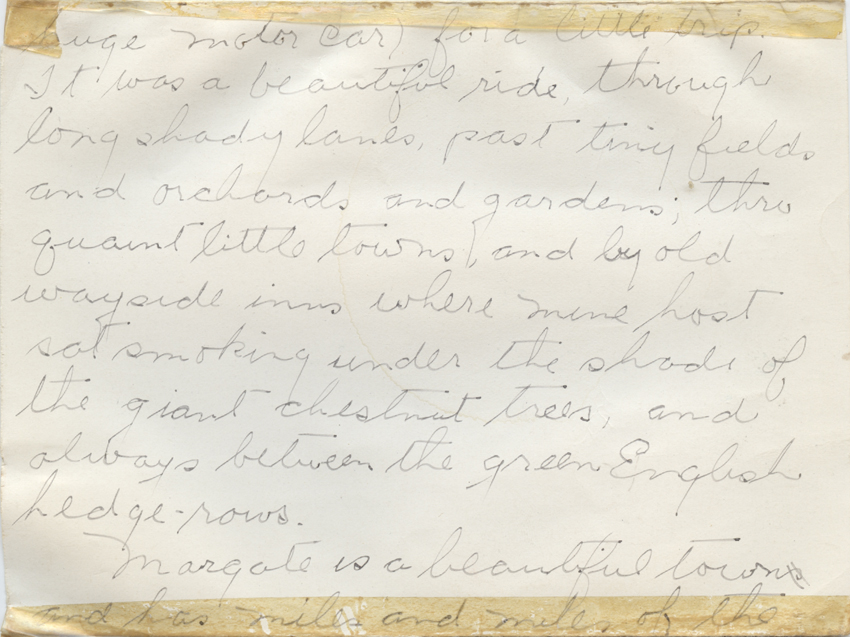 huge motor car) for a little trip.
It was a beautiful ride, through
long shady lanes, past tiny fields
and orchards and gardens; thru
quaint little towns, and by old
wayside inns where mine host
sat smoking under the shade of
the giant chestnut trees, and
always between the green English
hedge-rows.
Margate is a beautiful town
and has miles and miles of the